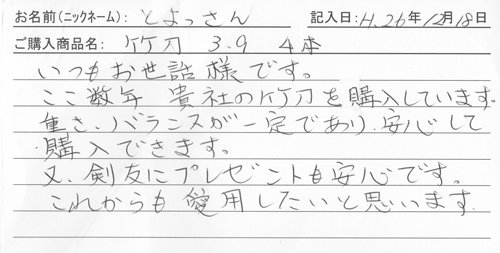 お名前(ニックネーム): とよっさん 記入日: H.26年12月18日
ご購入商品名: 竹刀 3.9 4本
いつもお世話様です。
ここ数年 貴社の竹刀を購入しています.
重さ、バランスが一定であり、安心して
購入できます。
又、剣友にプレゼントも安心です。
これからも愛用したいと思います.